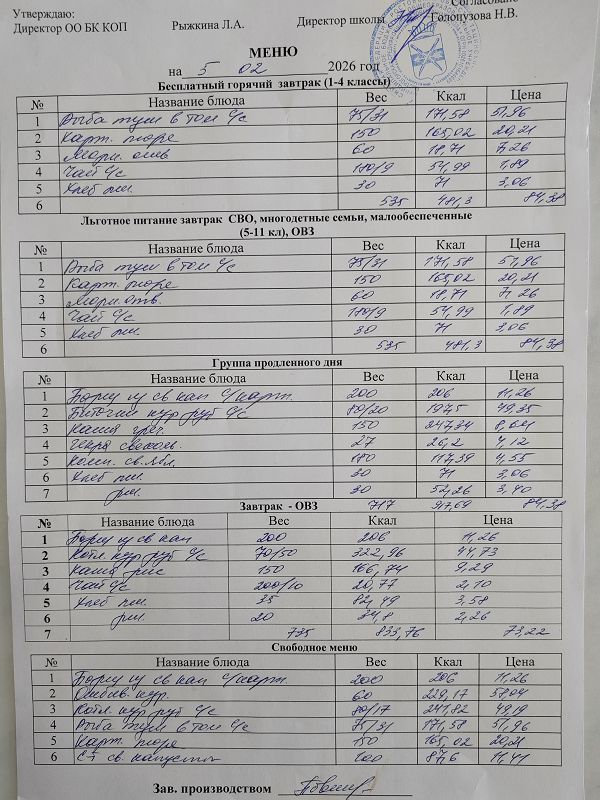 Утверждаю:
Согласовано
Директор ОО БК КОП Рыжкина Л.А. Директор школы Голопузова Н.В.
МЕНЮ
на 5 02 2026 год
Бесплатный горячий завтрак (1-4 классы)
№ Название блюда Вес Ккал Цена
1 Рыба туш в том с/с 75/31 171,58 51,96
2 Карт. пюре 150 165,02 20,21
3 60 18,71 7,26
4 Чай с/с 180/9 54,99 1,89
5 Хлеб пш. 30 71 3,06
6 535 481,3 84,38
Льготное питание завтрак СВО, многодетные семьи, малообеспеченные
(5-11 кл), ОВЗ
№ Название блюда Вес Ккал Цена
1 Рыба туш в том с/с 75/31 171,58 51,96
2 Карт. пюре 150 165,02 20,21
3 60 18,71 7,26
4 Чай с/с 180/9 54,99 1,89
5 Хлеб пш. 30 71 3,06
6 535 481,3 84,38
Группа продленного дня
№ Название блюда Вес Ккал Цена
1 Борщ из св кап с/карт. 200 206 11,26
2 Биточки кур руб с/с 80/20 197,5 49,35
3 Каша греч. 150 247,34 8,64
4 Икра свекол. 27 26,2 4,12
5 Комп. св. ябл. 180 117,39 4,55
6 Хлеб пш. 30 71 3,06
7 рж. 30 52,26 3,40
717 917,69 84,38
Завтрак - ОВЗ
№ Название блюда Вес Ккал Цена
1 Борщ из св кап 200 206 11,26
2 Котл кур руб с/с 70/50 322,96 44,73
3 Каша рис 150 166,74 9,29
4 Чай с/с 200/10 20,77 2,10
5 Хлеб пш. 35 82,49 3,58
6 рж. 20 34,8 2,26
7 735 833,76 73,22
Свободное меню
№ Название блюда Вес Ккал Цена
1 Борщ из св кап с/карт. 200 206 11,26
2 Отбив. кур. 60 229,17 58,04
3 Котл. кур руб с/с 80/17 241,82 49,19
4 Рыба туш в том с/с 75/31 171,58 51,96
5 Карт. пюре 150 165,02 20,21
6 св. капусты 100 87,6 11,41
Зав. производством